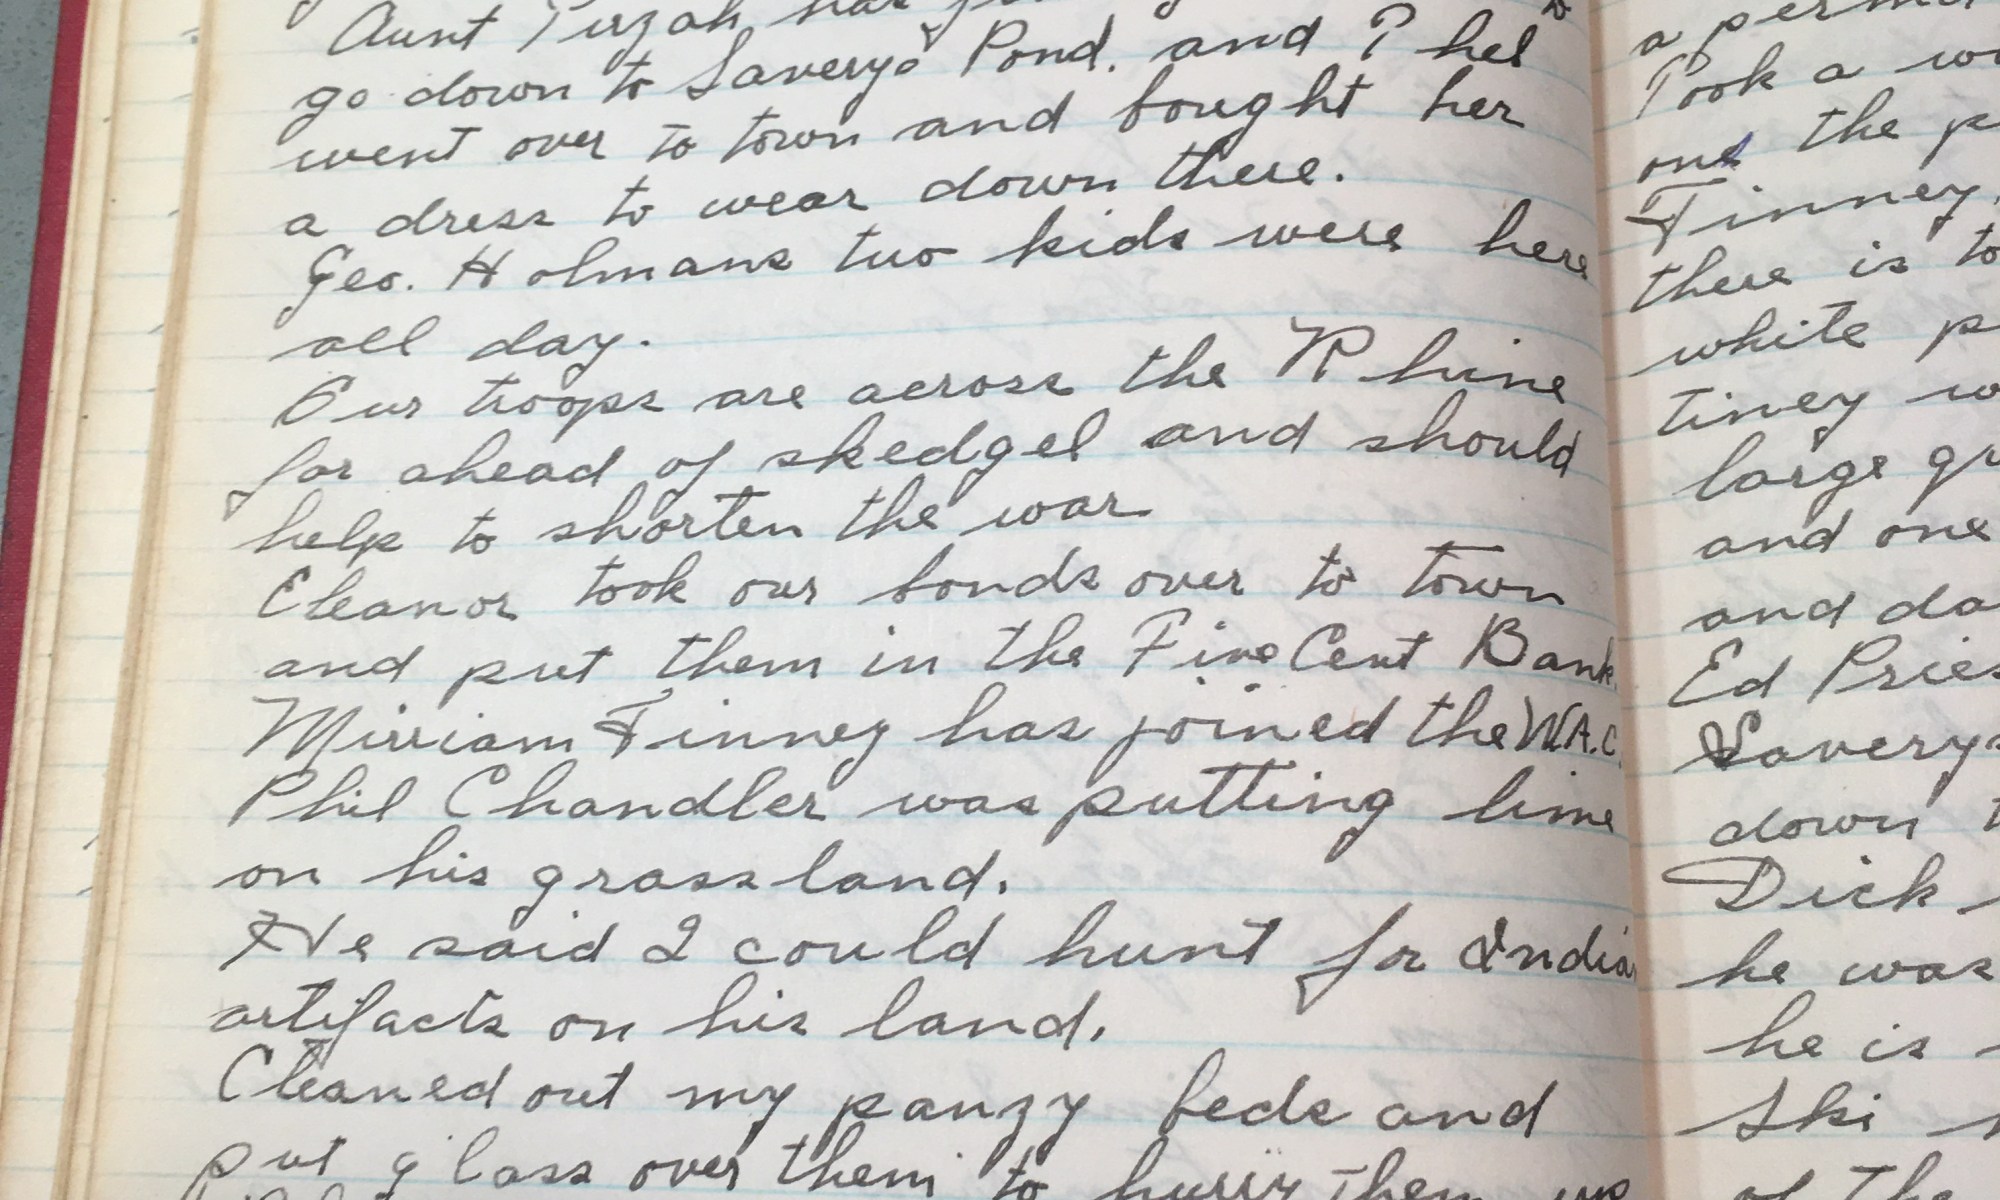 Aunt Puzah has
go down to Saverys Pond. and Phel
went over to town and bought her
a dress to wear down there.
Geo. Holmans two kids were here
all day.
Our troops are across the Rhine
far ahead of skedgel and should
help to shorten the war
Eleanor took our bonds over to town
and put them in the Five Cent Bank.
Mirriam Finney has joined the W.A.C.
Phil Chandler was putting lime
on his grass land.
He said I could hunt for Indian
artifacts on his land.
Cleaned out my panzy beds and
put glass over them to hurry them up
a
Took a
one the
Finney,
there is
white
tiney
large
and one
and
Ed
Saverys
down
Dick
he was
he is
Ski
of the